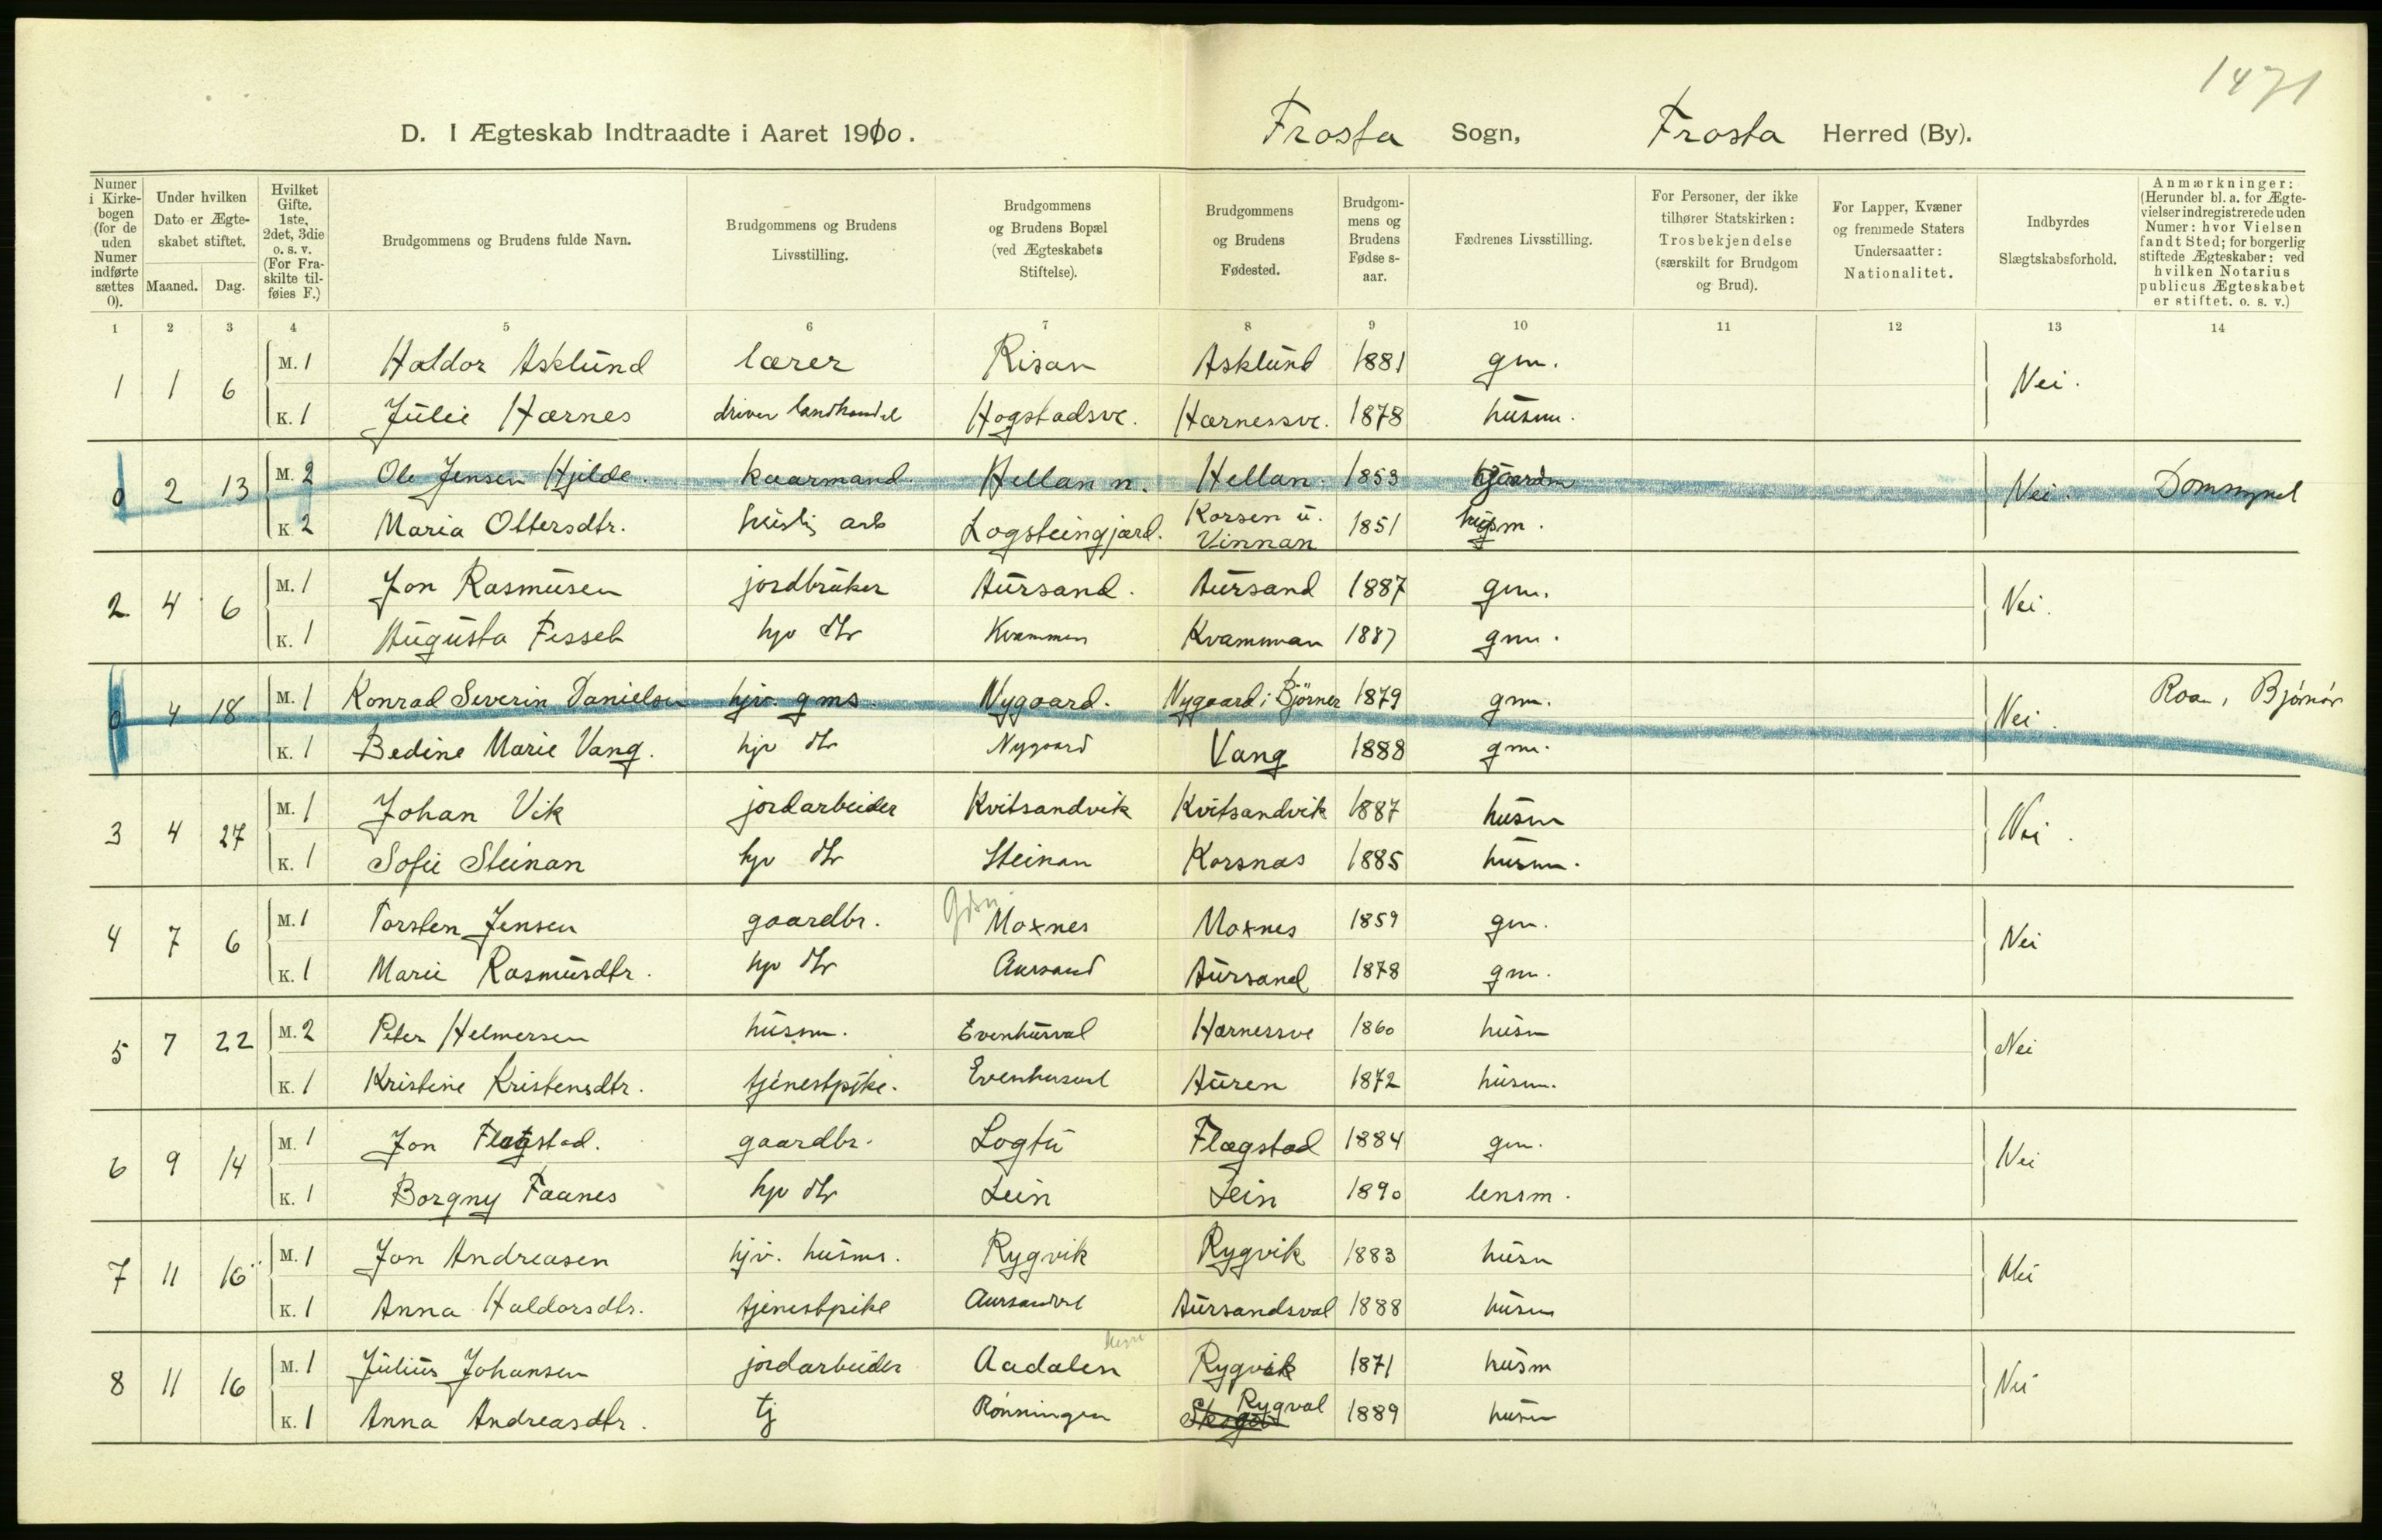 1471
D. I Ægteskab Indtraadte i Aaret 1910. Frosta Sogn, Frosta Herred (By).
Numer i Kirkebogen (for de uden Numer indførte sættes 0).
Under hvilken Dato er Ægteskabet stiftet.
Maaned. Dag.
Hvilket Gifte. 1ste, 2det, 3die o. s. v. (For Fraskilte tilføies F.)
Brudgommens og Brudens fulde Navn.
Brudgommens og Brudens Livsstilling.
Brudgommens og Brudens Bopæl (ved Ægteskabets Stiftelse).
Brudgommens og Brudens Fødested.
Brudgommens og Brudens Fødselsaar.
Fædrenes Livsstilling.
For Personer, der ikke tilhører Statskirken: Trosbekjendelse (særskilt for Brudgom og Brud).
For Lapper, Kvæner og fremmede Staters Undersaatter: Nationalitet.
Indbyrdes Slægtskabsforhold.
Anmærkninger: (Herunder bl. a. for Ægtevielser indregistrerede uden Numer: hvor Vielsen fandt Sted; for borgerlig stiftede Ægteskaber: ved hvilken Notarius publicus Ægteskabet er stiftet. o. s. v.)
1 2 3 4 5 6 7 8 9 10 11 12 13 14
1 1 6 M. 1 Haldor Asklund lærer Risan Asklund 1881 gm. Nei.
K. 1 Julie Hærnes driver landhandel Hogstadsve. Hærnessve. 1878 husm.
0 2 13 M. 2 Ole Jensen Hjilde. kaarmand. Hellan n. Hellan. 1853 Nei.
K. 2 Maria Ottersdtr. huslig arb Logsteingjærd. Korsen u. Vinnan 1851 husm.
2 4 6 M. 1 Jon Rasmusen jordbruker Aursand. Aursand 1887 gm. Nei.
K. 1 Augusta Fisseth hjv dtr Kvammen Kvamman 1887 gm.
0 4 18 M. 1 Konrad Severin Danielsen hjv. gms. Nygaard. Nygaard i Björner 1879 gm. Nei. Roan, Bjørnør
K. 1 Bedine Marie Vang. hjv dtr Nygaard Vang 1888 gm.
3 4 27 M. 1 Johan Vik jordarbeider Kvitsandvik Kvitsandvik 1887 husm Nei.
K. 1 Sofie Steinan hjv dtr Steinan Korsnas 1885 husm.
4 7 6 M. 1 Torsten Jensen gaardbr. Moxnes Moxnes 1859 gm. Nei
K. 1 Marie Rasmusdtr. hjv dtr Aursand Aursand 1878 gm.
5 7 22 M. 2 Peter Helmersen husm. Evenhusval Hærnessve 1860 husm Nei
K. 1 Kristine Kristensdtr. tjenestpike. Evenhusval Auren 1872 husm.
6 9 14 M. 1 Jon Flagstad. gaardbr. Logtu Flægstad 1884 gm. Nei
K. 1 Borgny Faanes hjv dtr Lein Lein 1890 lensm.
7 11 16 M. 1 Jon Andreasen hjv. husms. Rygvik Rygvik 1883 husm Nei
K. 1 Anna Haldorsdtr. tjenestpike Aursandval Aursandsval 1888 husm
8 11 16 M. 1 Julius Johansen jordarbeider Aadalen Rygvik 1871 husm Nei
K. 1 Anna Andreasdtr. tj Rønningen Rygval 1889 husm